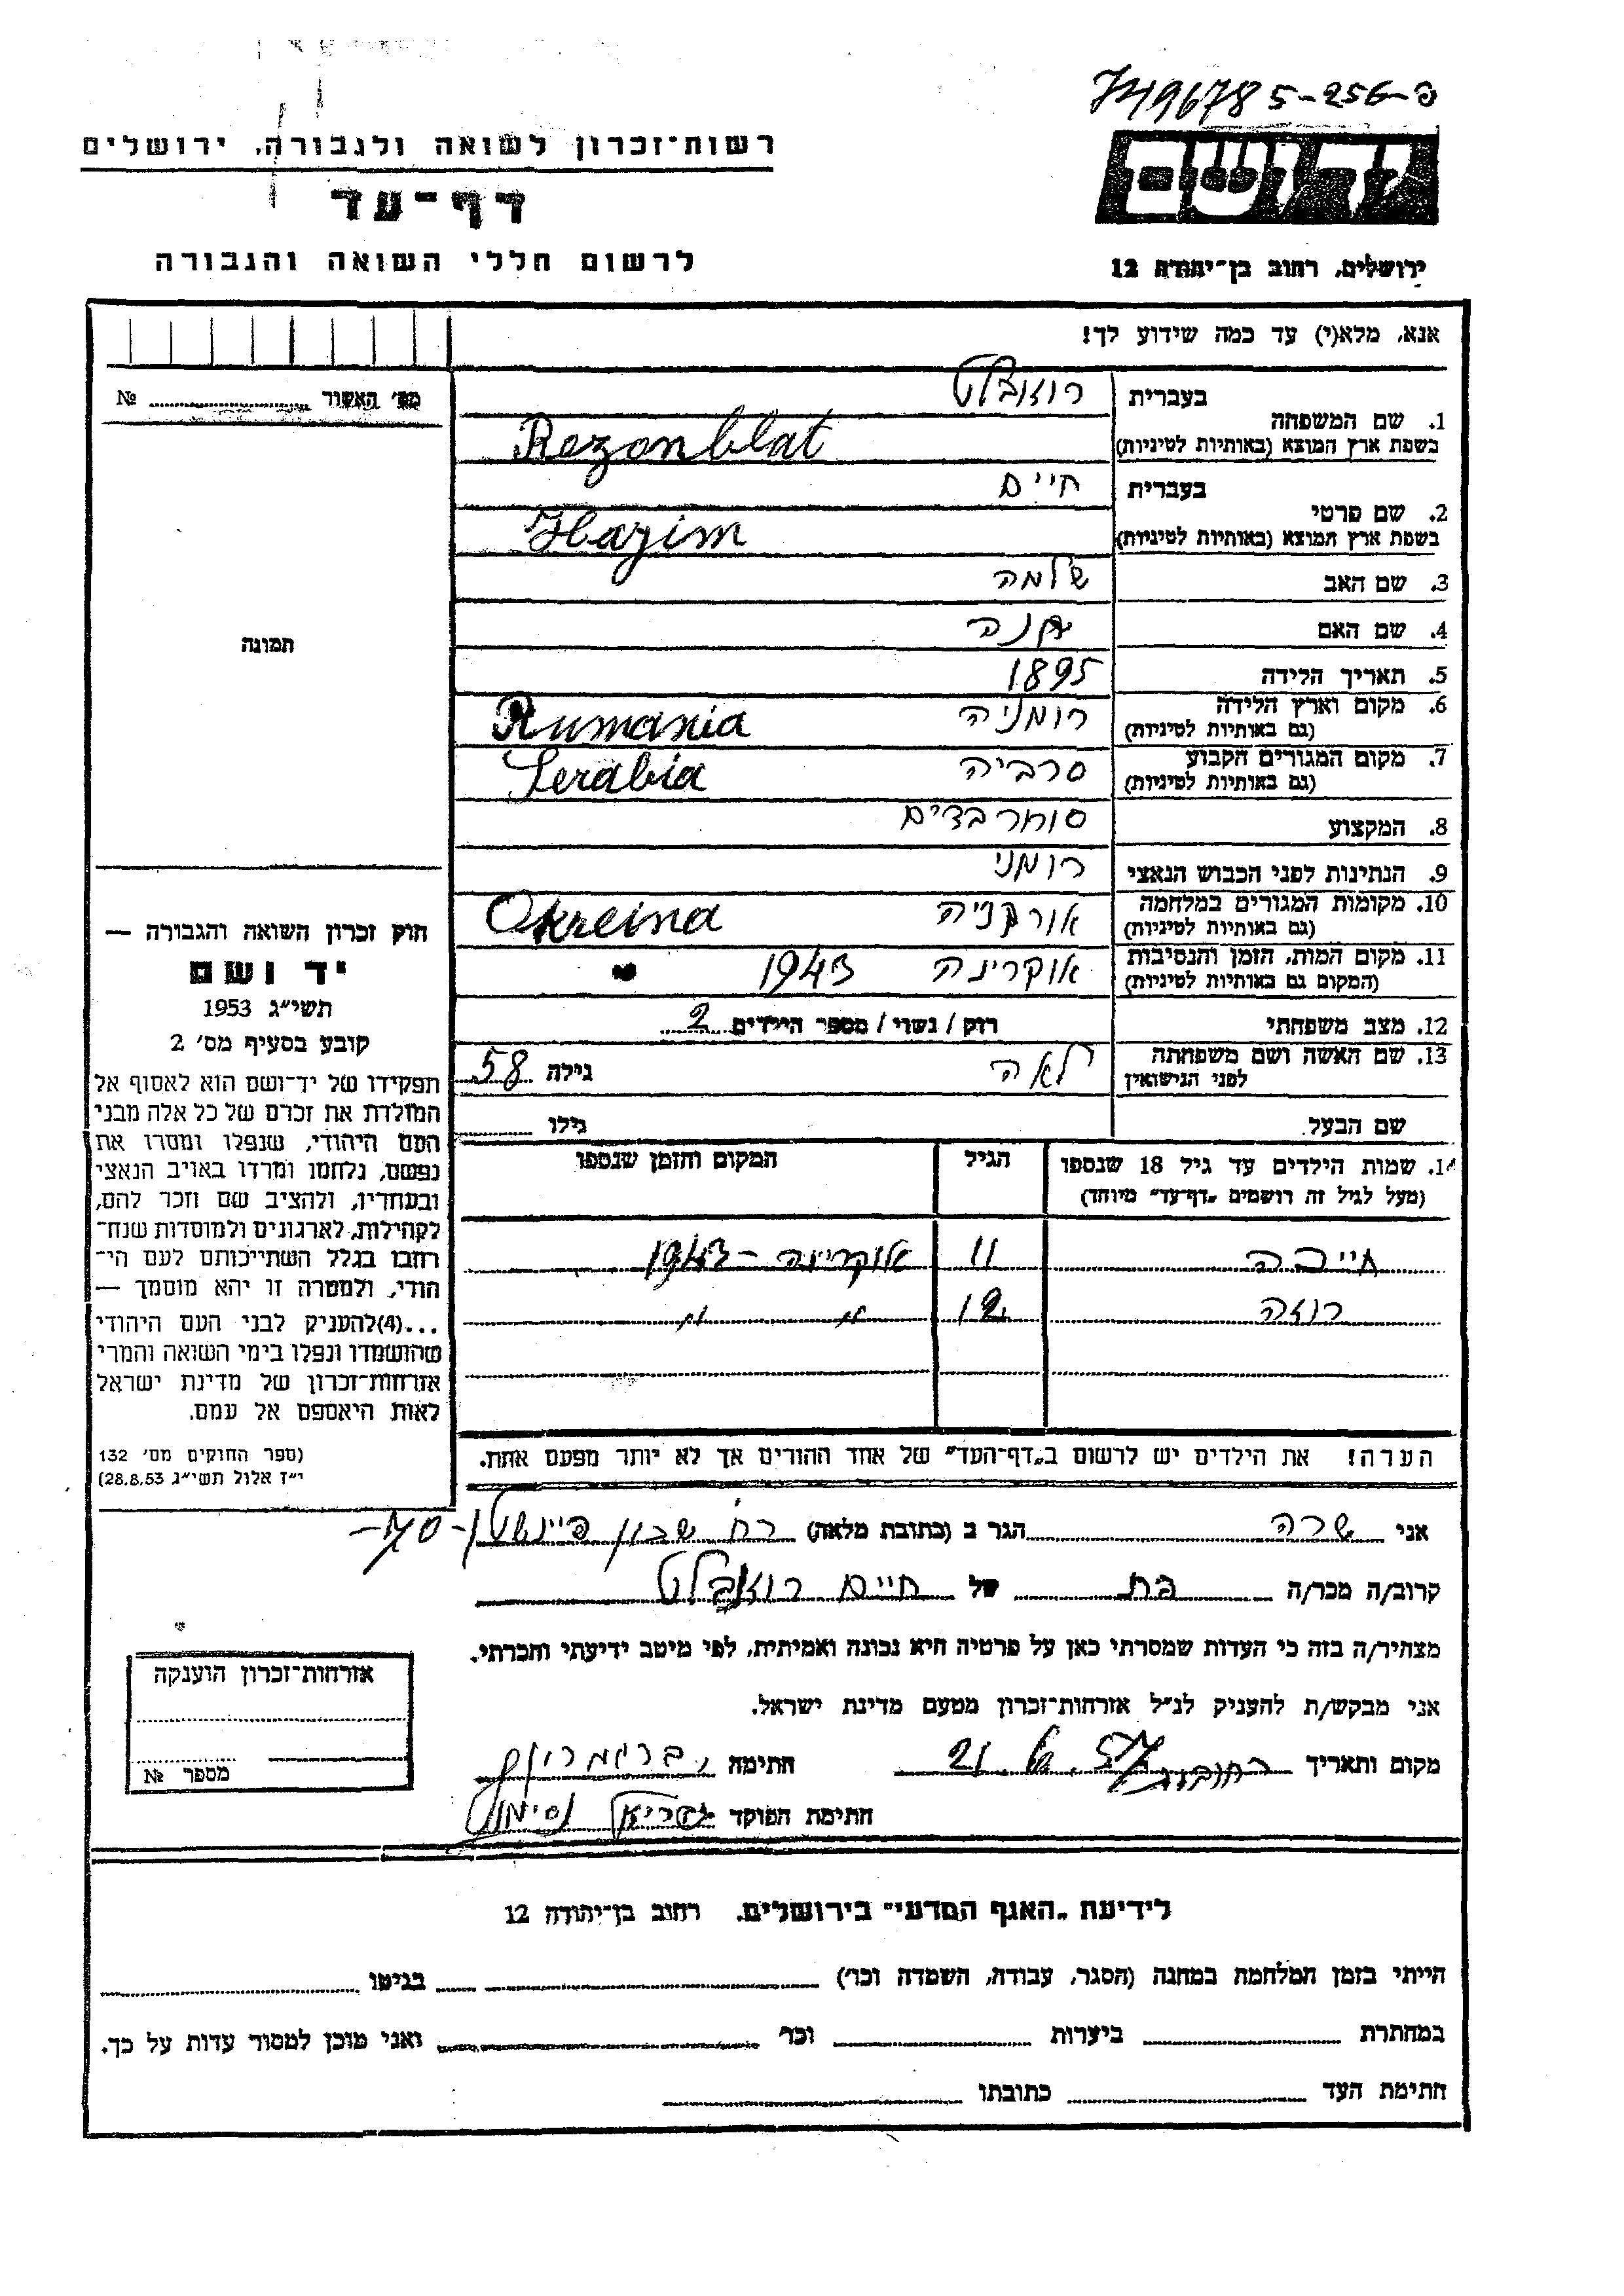 7496785-256-פ
רשות־זכרון לשואה ולגבורה, ירושלים
יד ושם
דף־עד
לרשום חללי השואה והגבורה
ירושלים, רחוב בן־יהודה 12
אנא, מלא(י) עד כמה שידוע לך!
מס' האשור № 
1. שם המשפחה
בעברית
רוזנבלט
בשפת ארץ המוצא (באותיות לטיניות)
Rezonblat
2. שם פרטי
בעברית
חיים
בשפת ארץ המוצא (באותיות לטיניות)
Hazim
3. שם האב שלמה
4. שם האם
5. תאריך הלידה 1895
6. מקום וארץ הלידה רומניה Rumania
(גם באותיות לטיניות)
7. מקום המגורים הקבוע סרביה Serabia
(גם באותיות לטיניות)
8. המקצוע סוחר בדים
9. הנתינות לפני הכבוש הנאצי רומני
10. מקומות המגורים במלחמה אורקניה Okreina
(גם באותיות לטיניות)
11. מקום המות, הזמן והנסיבות אוקרינה 1943
(המקום גם באותיות לטיניות)
12. מצב משפחתי רוק / נשוי / מספר הילדים 2
13. שם האשה ושם משפחתה לאה גילה 58
לפני הנישואין
שם הבעל גילו
14. שמות הילדים עד גיל 18 שנספו הגיל המקום והזמן שנספו
(מעל לגיל זה רושמים „דף־עד" מיוחד)
חייכה 11 אוקרינה – 1943
רוזה 12 " "
הערה! את הילדים יש לרשום ב„דף־העד" של אחד ההורים אך לא יותר מפעם אחת.
תמונה
חוק זכרון השואה והגבורה —
יד ושם
תשי"ג 1953
קובע בסעיף מס' 2
תפקידו של יד־ושם הוא לאסוף אל
המולדת את זכרם של כל אלה מבני
העם היהודי, שנפלו ומסרו את
נפשם, נלחמו ומרדו באויב הנאצי
ובעוזריו, ולהציב שם וזכר להם,
לקהילות, לארגונים ולמוסדות שנח־
רחבו בגלל השתייכותם לעם הי־
הודי, ולמטרה זו יהא מוסמך —
...(4)להעניק לבני העם היהודי
שהושמדו ונפלו בימי השואה והמרי
אזרחות־זכרון של מדינת ישראל
לאות היאספם אל עמם.
(ספר החוקים מס' 132
י"ז אלול תשי"ג 28.8.53)
אני שרה הגר ב (כתובת מלאה) רח
קרוב/ה מכר/ה בת של חיים רוזנבלט
מצהיר/ה בזה כי העדות שמסרתי כאן על פרטיה היא נכונה ואמיתית, לפי מיטב ידיעתי והכרתי.
אני מבקש/ת להעניק לנ"ל אזרחות־זכרון מטעם מדינת ישראל.
מקום ותאריך רחובות חתימה
חתימת הפוקד
אזרחות־זכרון הוענקה
מספר №
לידיעת „האגף המדעי" בירושלים. רחוב בן־יהודה 12
הייתי בזמן המלחמה במחנה (הסגר, עבודה, השמדה וכו') בגיטו
במחתרת ביערות וכו' ואני מוכן למסור עדות על כך.
חתימת העד כתובתו